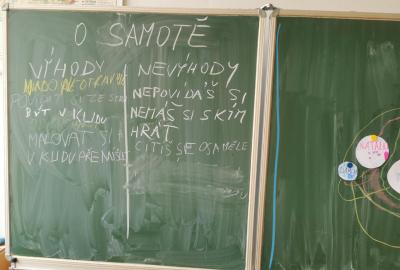 O SAMOTĚ
VÝHODY
NIKDO NEOTRAVUJE
POVÍDAT SI ZE
BÝT V KLIDU
MALOVAT SI
V KLIDU PŘEMÝŠLET
NEVÝHODY
NEPOVÍDAŠ SI
NEMÁŠ SI S KÝM
HRÁT
CÍTÍŠ SE OSAMĚLE